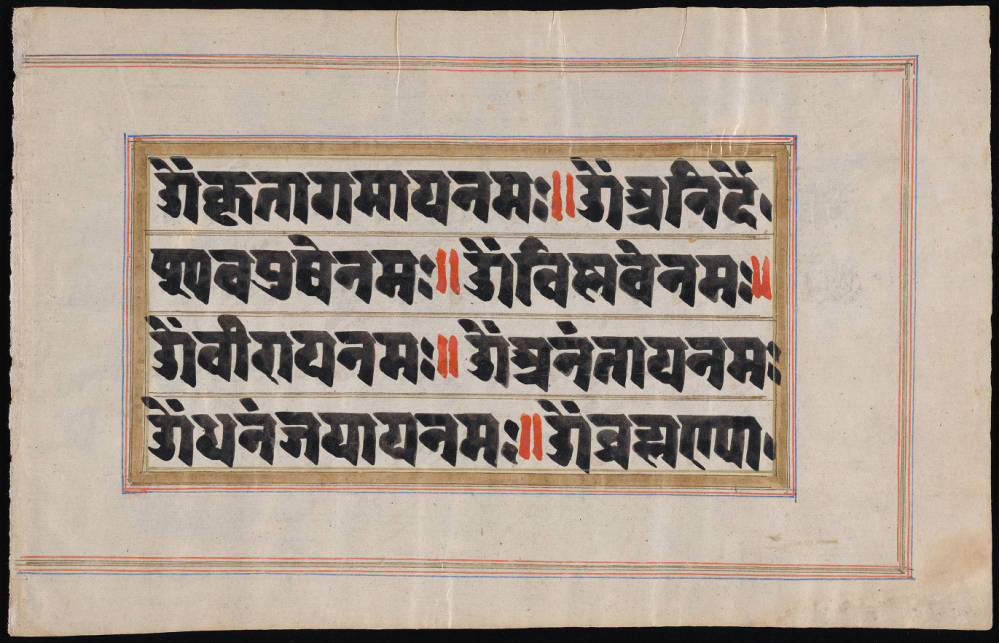 ॐकृतागमायनमः॥ॐअनिर्दे
श्यवपुषेनमः॥ॐविष्णवेनमः॥
ॐवीरायनमः॥ॐअनंतायनमः
ॐधनंजयायनमः॥ॐब्रह्मण्या